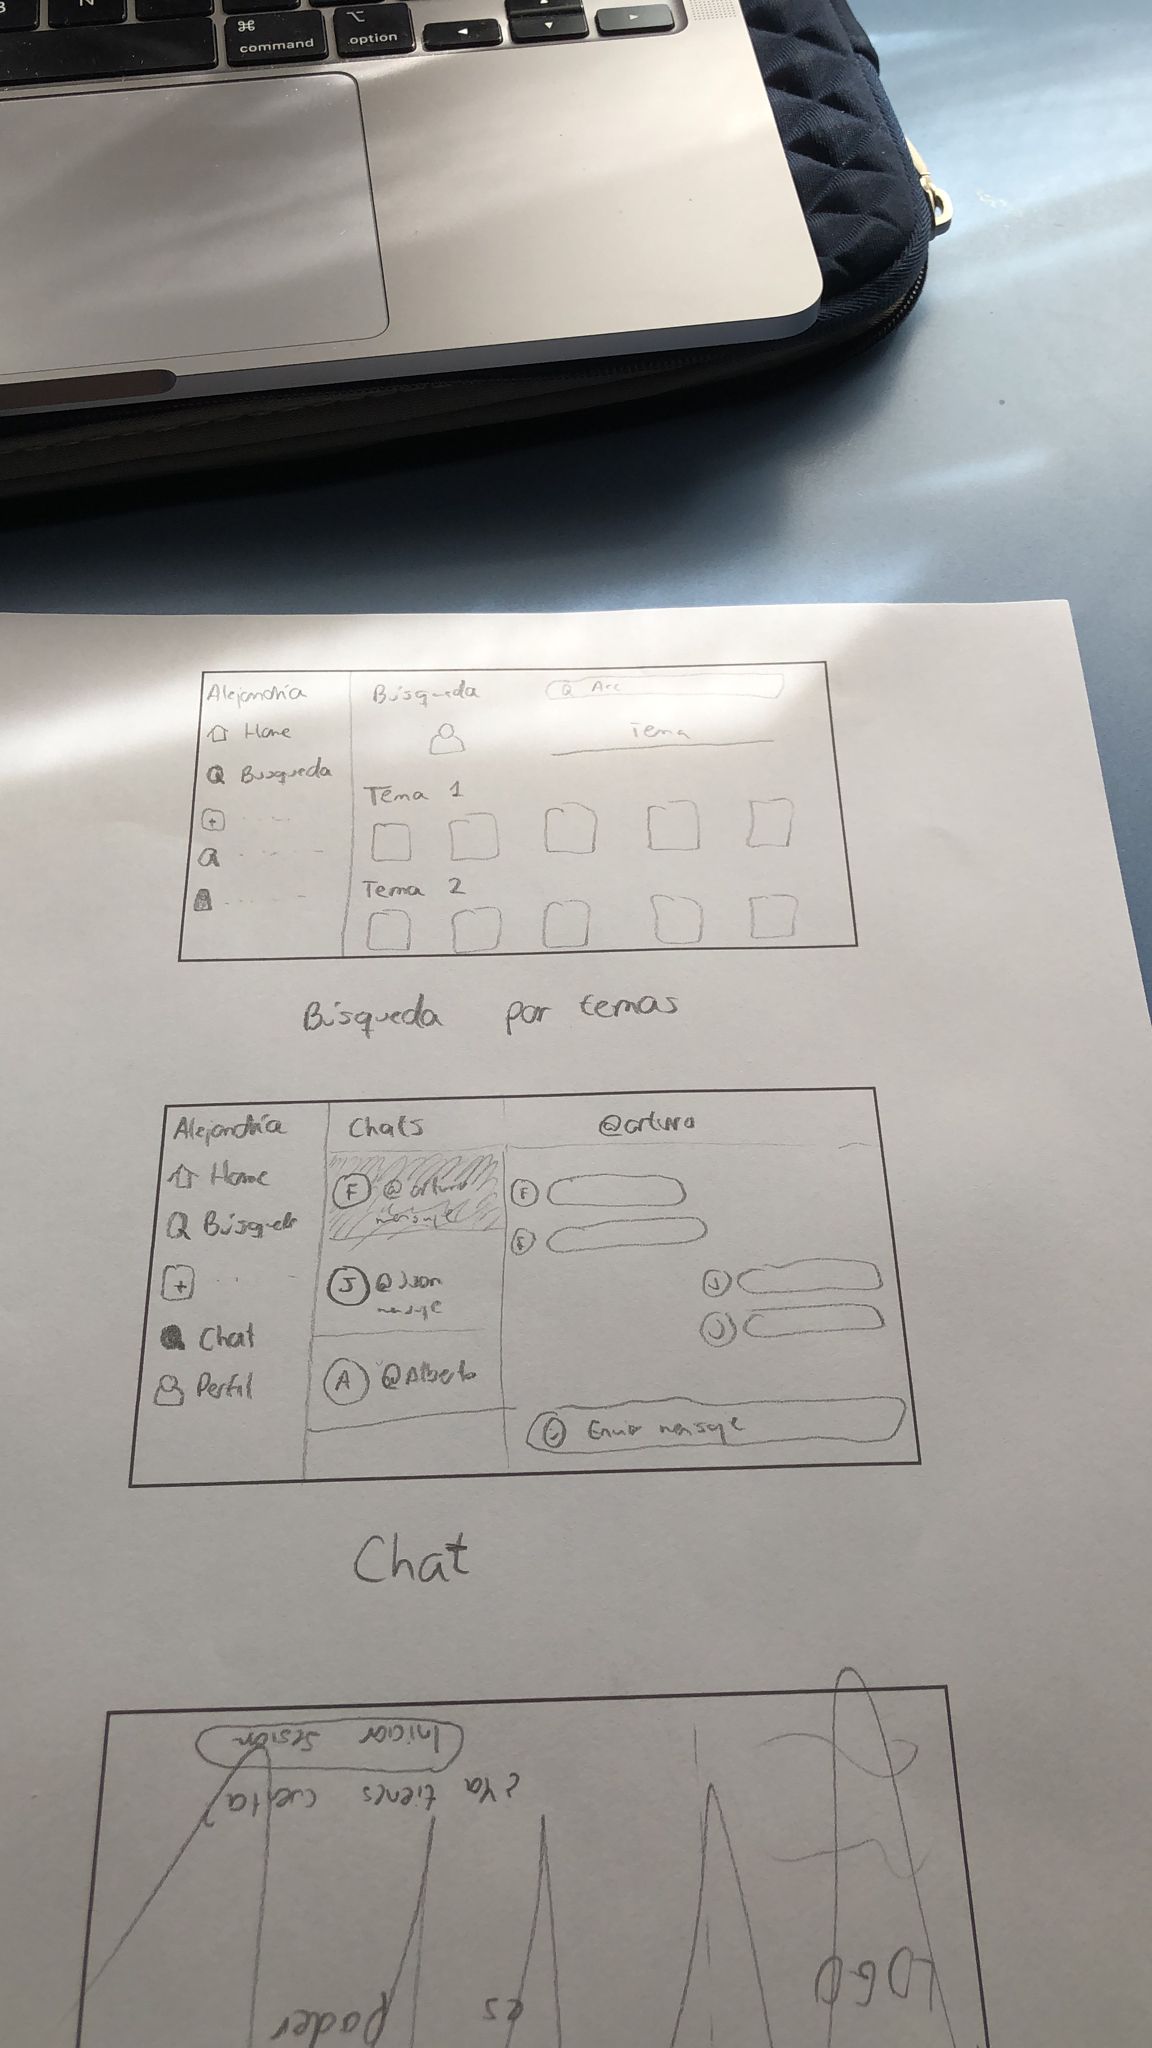 command
option
Alejandría
Home
Búsqueda
Búsqueda
Tema
Tema 1
Tema 2
Búsqueda por temas
Alejandría
Home
Chat
Perfil
Chats
F @arturo
mensaje
J @Juan
mensaje
A @Alberto
@arturo
F
J
J
Enviar mensaje
Chat
Iniciar sesión
¿Ya tienes cuenta?
LOGO
es
poder